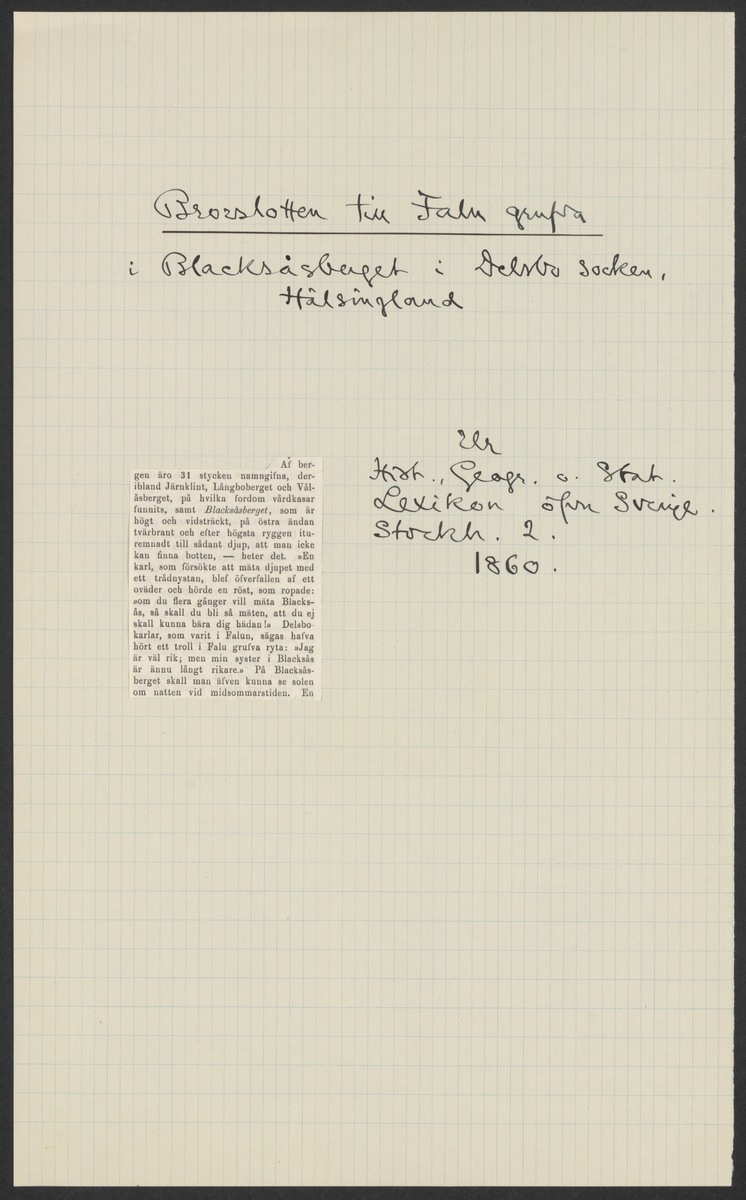 Brorslotten till Falu grufva
i Blacksåsberget i Delsbo socken,
Hälsingland
Ur
Hist., Geogr. o. Stat.
Lexikon öfver Sverige.
Stockh. 2.
1860.
Af ber-
gen äro 31 stycken namngifna, der-
ibland Järnklint, Långboberget och Vål-
åsberget, på hvilka fordom vårdkasar
funnits, samt Blacksåsberget, som är
högt och vidsträckt, på östra ändan
tvärbrant och efter högsta ryggen itu-
remnadt till sådant djup, att man icke
kan finna botten, — heter det. »En
karl, som försökte att mäta djupet med
ett trådnystan, blef öfverfallen af ett
oväder och hörde en röst, som ropade:
»om du flera gånger vill mäta Blacks-
ås, så skall du bli så mäten, att du ej
skall kunna bära dig hädan!» Delsbo-
karlar, som varit i Falun, sägas hafva
hört ett troll i Falu grufva ryta: »Jag
är väl rik; men min syster i Blacksås
är ännu långt rikare.» På Blacksås-
berget skall man äfven kunna se solen
om natten vid midsommarstiden. En